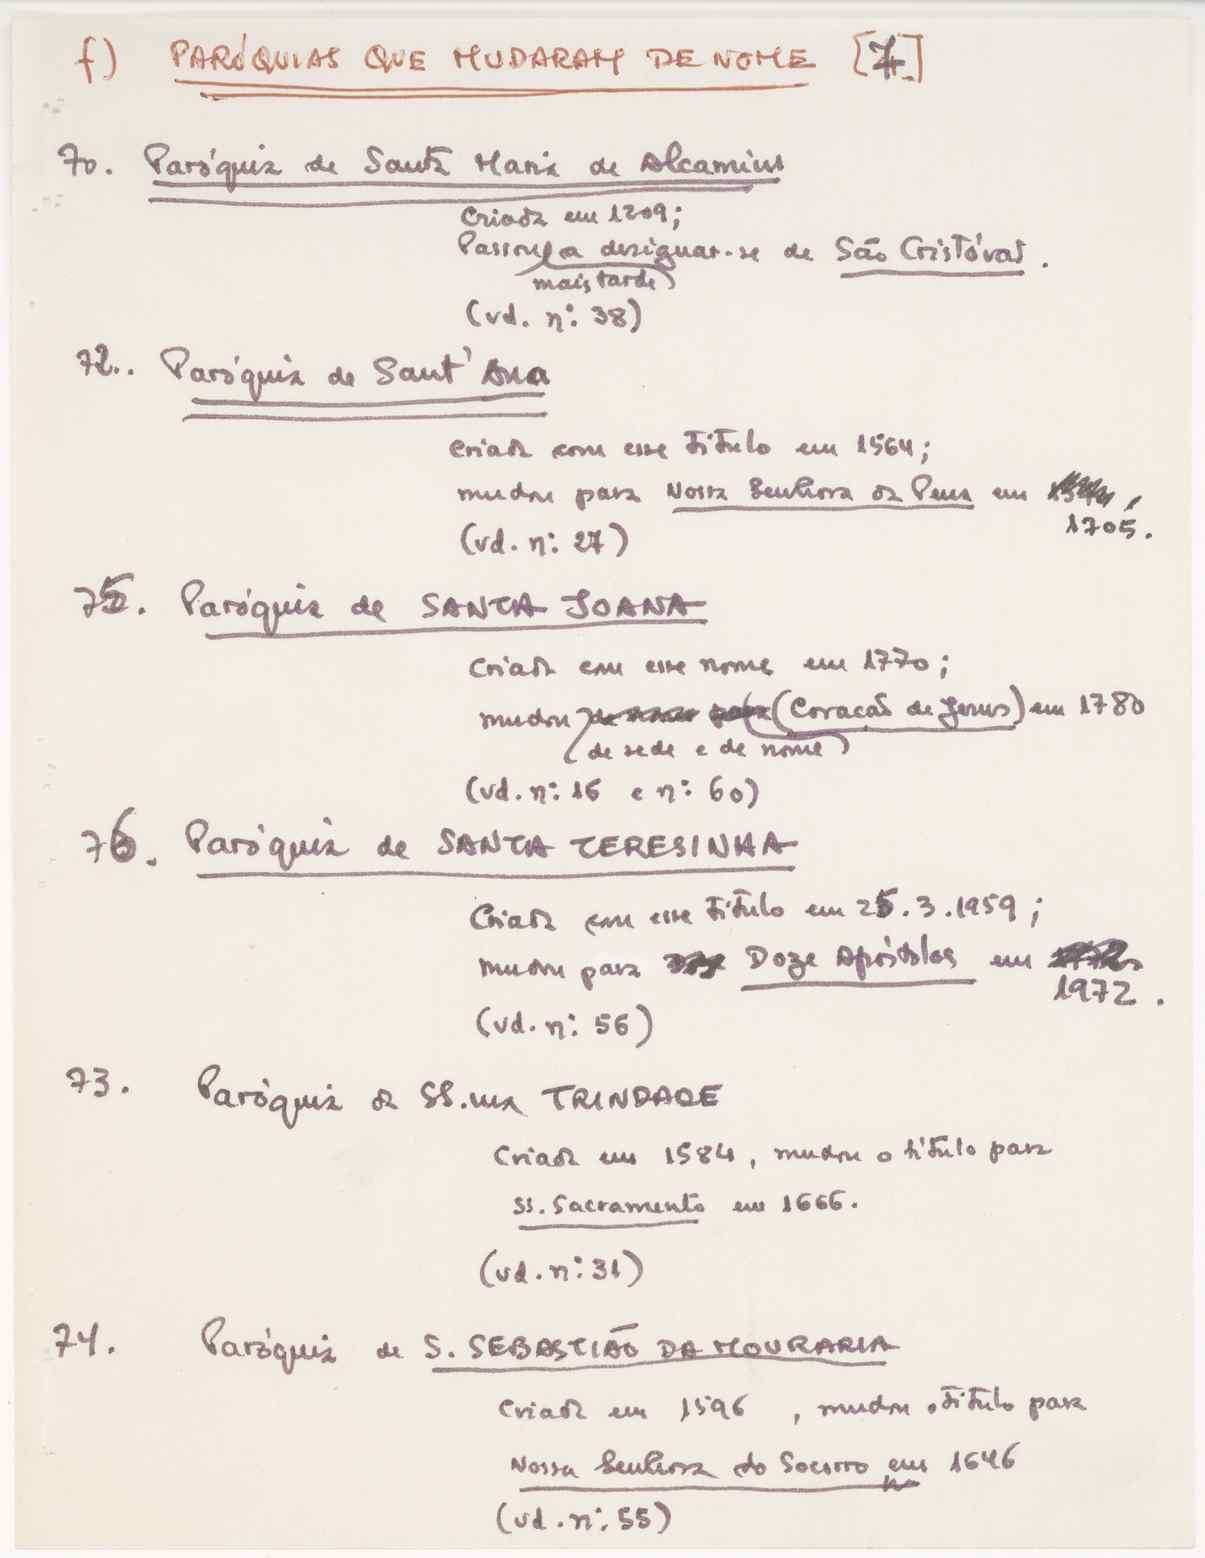 f) PARÓQUIAS QUE MUDARAM DE NOME [7]
70. Paróquia de Santa Maria de Alcamim
Criada em 1209;
Passou a designar-se de São Cristóvaõ.
mais tarde
(vd. nº: 38)
72. Paróquia de Sant'Ana
Criada com esse título em 1564;
mudou para Nossa Senhora da Pena em
1705.
(vd. nº: 27)
75. Paróquia de SANTA JOANA
Criada com esse nome em 1770;
mudou (Coração de Jesus) em 1780
(de sede e de nome)
(vd. nº: 16 e nº: 60)
76. Paróquia de SANTA TERESINHA
Criada com esse título em 25.3.1959;
mudou para Doze Apóstolos em
1972.
(vd. nº: 56)
73. Paróquia da SS.ma TRINDADE
Criada em 1584, mudou o título para
SS. Sacramento em 1666.
(vd. nº: 31)
74. Paróquia de S. SEBASTIÃO DA MOURARIA
Criada em 1596, mudou o título para
Nossa Senhora do Socorro em 1646
(vd. nº: 55)